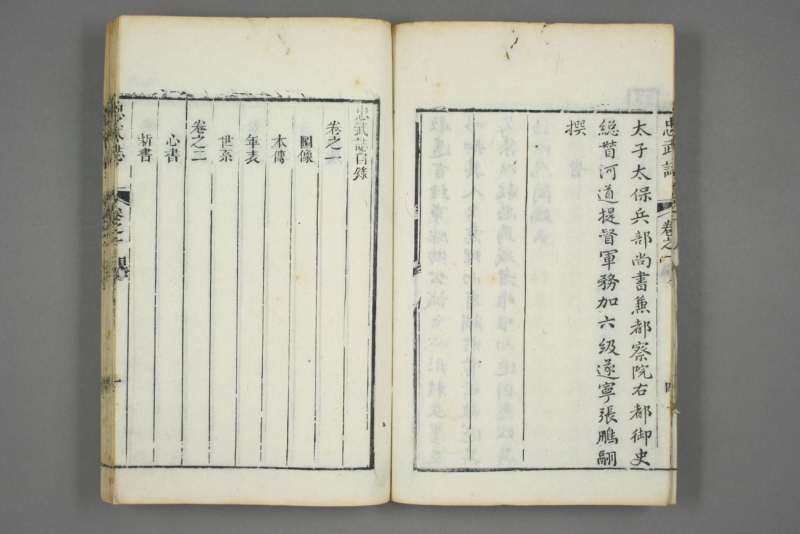 太子太保兵部尚書兼都察院右都御史
總督河道提督軍務加六級遂寧張鵬翮
撰
忠武誌目錄
卷之一
圖像
本傳
年表
世系
卷之二
心書
新書
忠武誌
卷之一